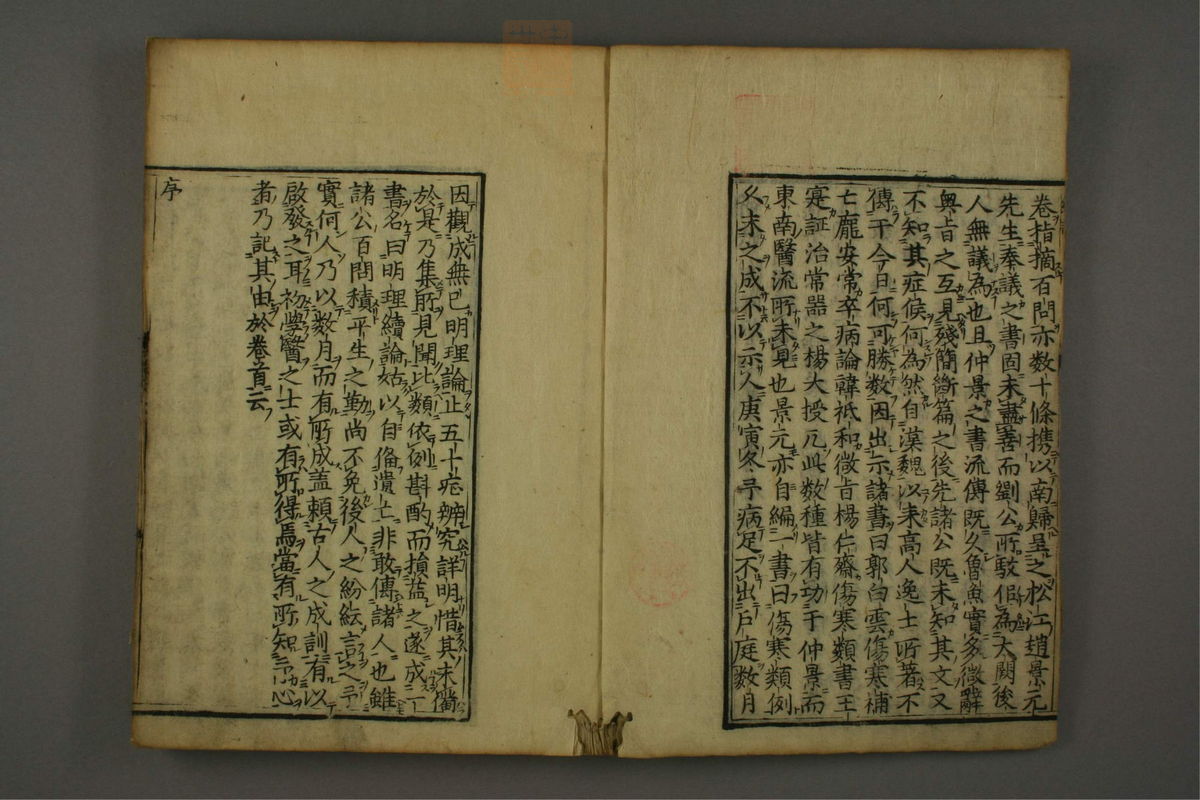 卷指摘百問亦数十條携以南歸呈之松江趙景元
先生奉議之書固未盡善而劉公所駁但為太闕後
人無議為也且仲景之書流傳既久魯魚實多微辭
奥旨之互見殘簡斷篇之後先諸公既未知其文又
不知其症候何為然自漢魏以来高人逸士所著不
傳于今日何可勝数因出示諸書曰郭白雲傷寒補
亡龐安常卒病論韓祗和微旨楊仁齋傷寒類書王
寔証治常器之楊大授凡此数種皆有功于仲景而
東南醫流所未見也景元亦自編一書曰傷寒類例
久未之成不以示人庚寅冬予病足不出戸庭数月
因觀成無已明理論止五十症辨究詳明惜其未備
於是乃集所見聞比類依例斟酌而損益之遂成一
書名曰明理續論姑以自偹遺亡非敢傳諸人也雖
諸公百問積平生之勤尚不免後人之紛紜言之予
實何人乃以数月而有所成盖頼古人之成訓有以
啟發之耳初學醫之士或有所得焉當有所知予心
者乃記其由於卷首云
序